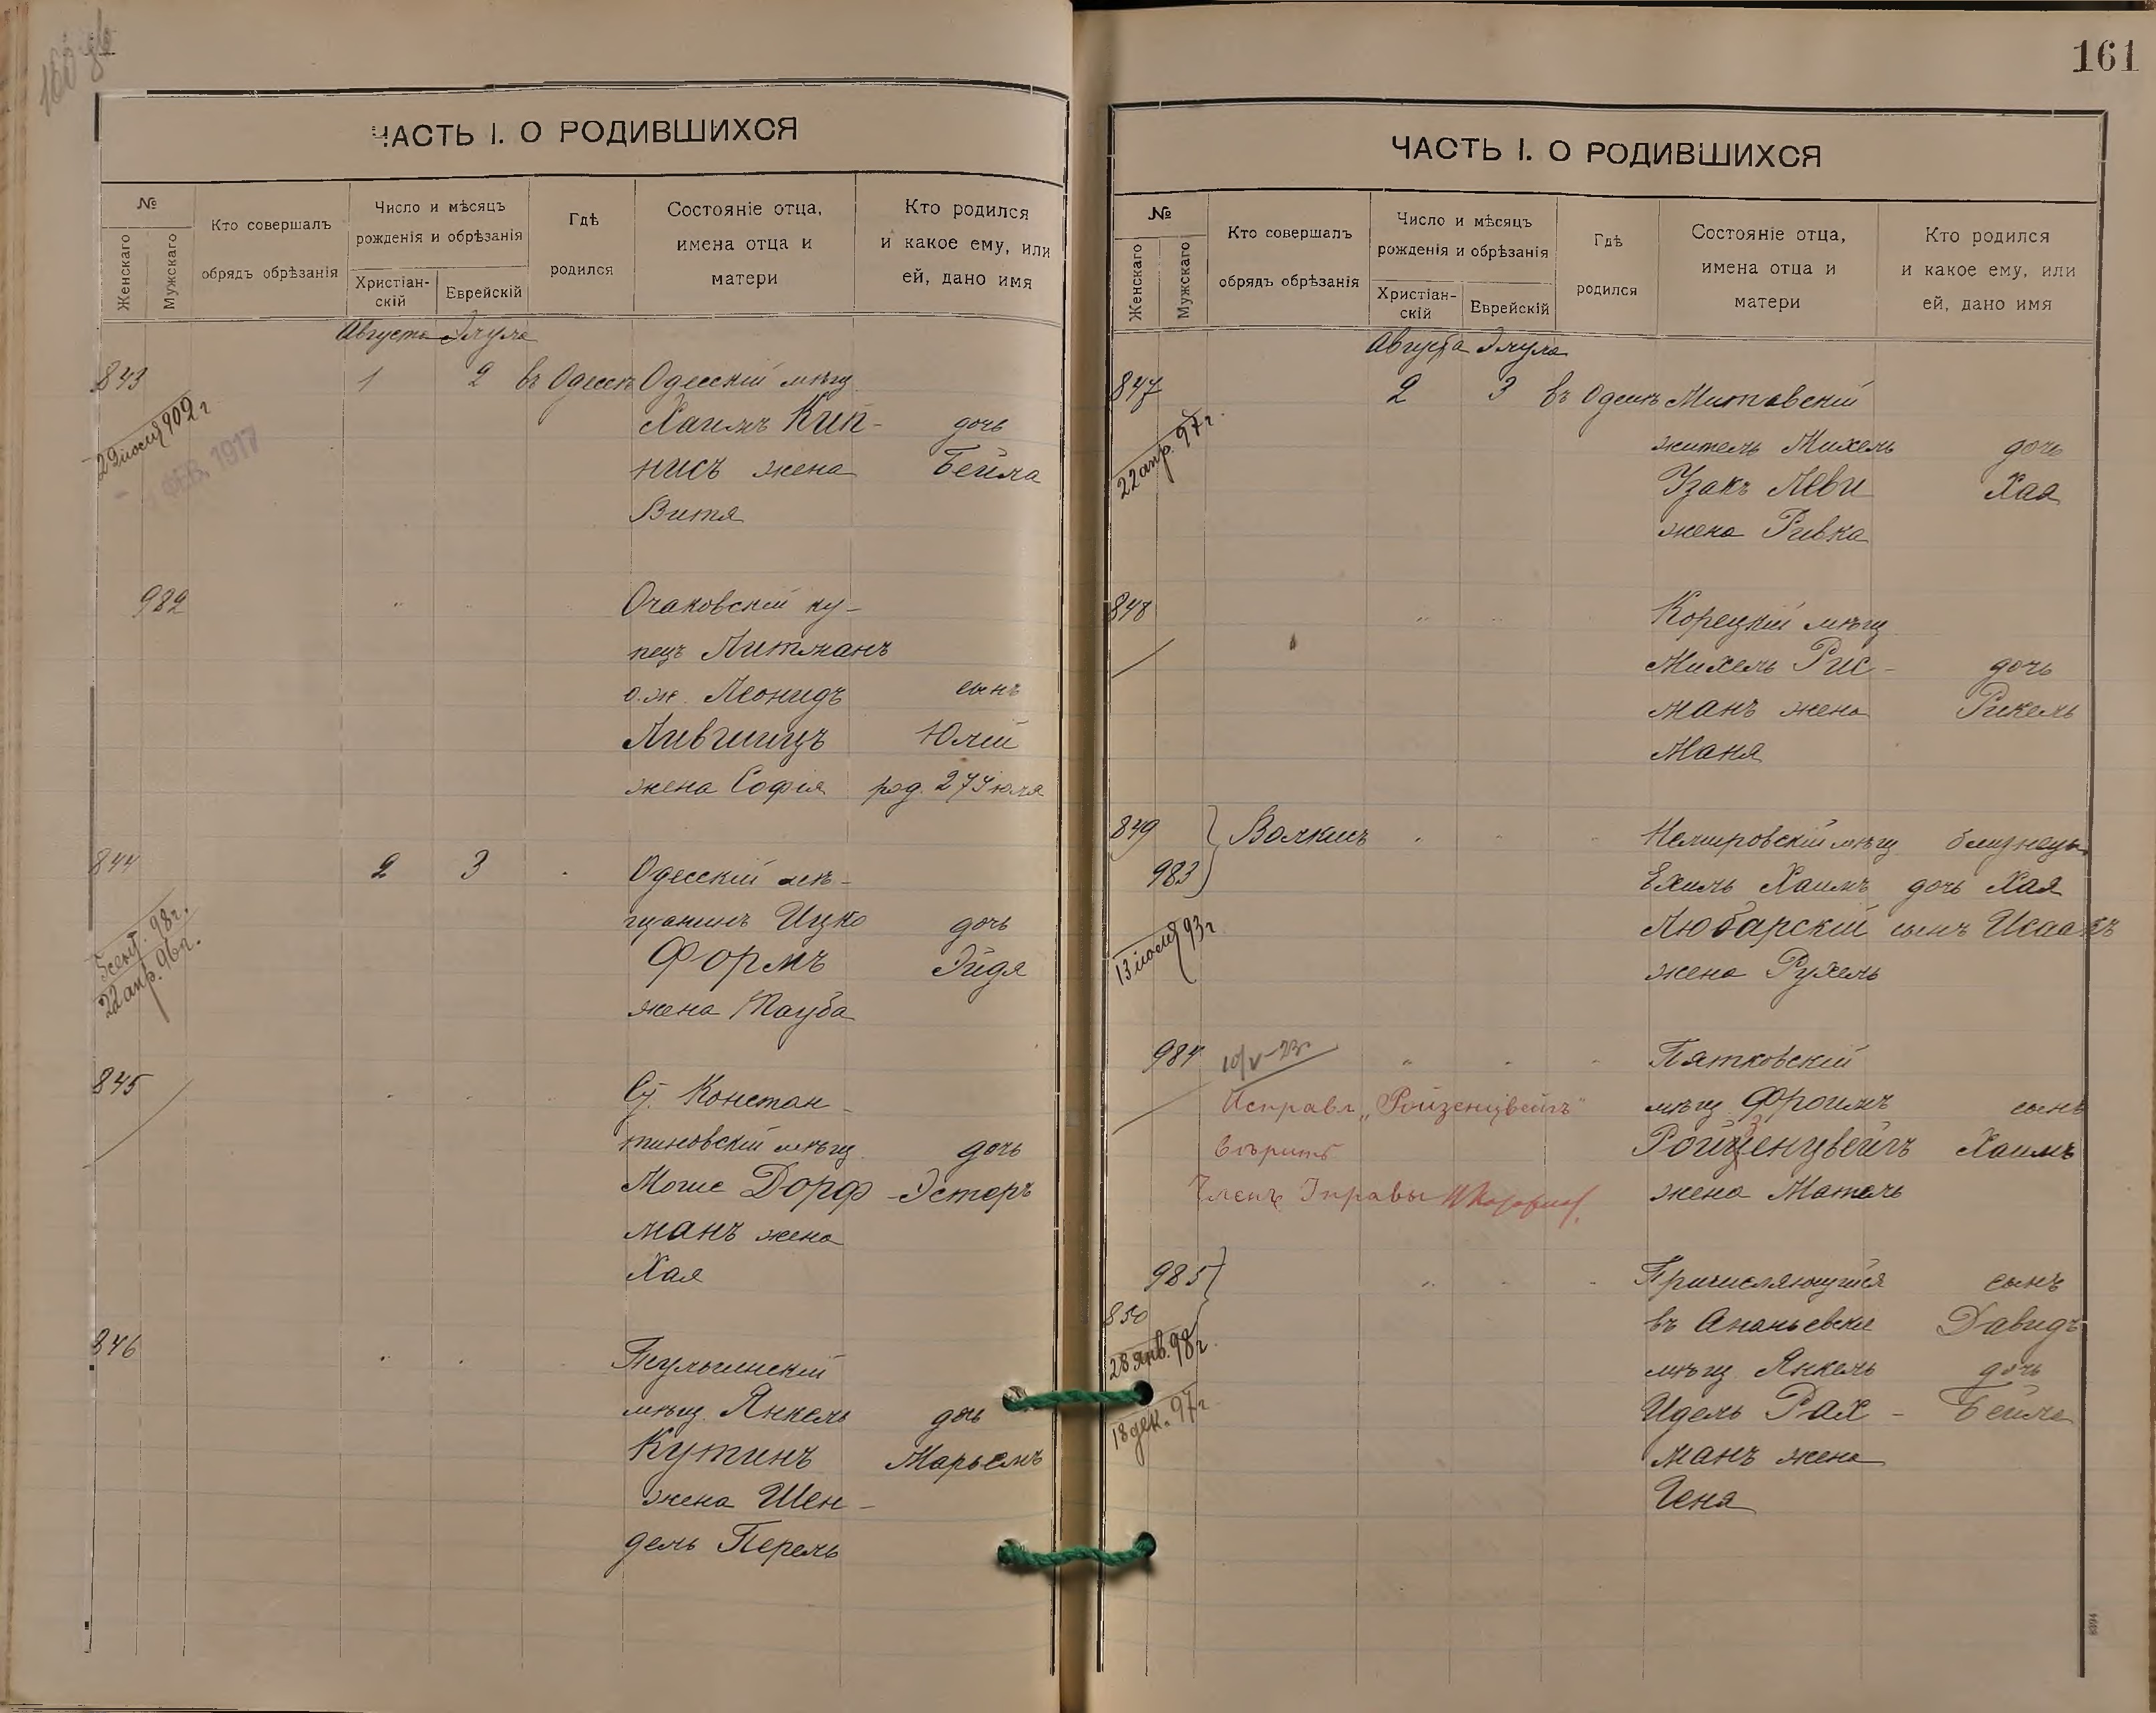 ЧАСТЬ I. О РОДИВШИХСЯ
№
Женскаго
Мужскаго
Кто совершалъ
обрядъ обрѣзанія
Число и мѣсяцъ
рожденія и обрѣзанія
Христіан-
скій
Еврейскій
Гдѣ
родился
Состояніе отца,
имена отца и
матери
Кто родился
и какое ему, или
ей, дано имя
Августа Элула
843 1 2 въ Одессѣ Одесскій мѣщ.
29 іюля 902 г
ФЕВ. 1917
Хаимъ Кип- дочь
нисъ жена Бейла
Витя
982 " " Очаковскій ку-
пецъ Литманъ
о.ж. Леонидъ сынъ
Лившицъ Юлій
жена Софія род. 27 Іюля
844 2 3 " Одесскій мѣ-
щанинъ Ицко дочь
5 сент. 98 г.
22 апр. 96 г.
Формъ Эйдя
жена Тауба
845 " " " Ст. Констан-
тиновскій мѣщ. дочь
Моше Дорф- Эстеръ
манъ жена
Хая
846 " " Тульчинскій
мѣщ. Янкель дочь
Кутинъ Марьемъ
жена Шен-
дель Перель
161
ЧАСТЬ I. О РОДИВШИХСЯ
№
Женскаго
Мужскаго
Кто совершалъ
обрядъ обрѣзанія
Число и мѣсяцъ
рожденія и обрѣзанія
Христіан-
скій
Еврейскій
Гдѣ
родился
Состояніе отца,
имена отца и
матери
Кто родился
и какое ему, или
ей, дано имя
Августа Элула
847 2 3 въ Одессѣ Митавскій
22 апр. 97 г.
житель Михель дочь
Изакъ Леви Хая
жена Ривка
848 " " Корецкій мѣщ.
Михель Рис- дочь
манъ жена Рикель
Маня
849 Волкисъ " " " Немировскій мѣщ. близнецы
983 Ехиль Хаимъ дочь Хая
13 іюля 93 г
Любарскій сынъ Исаакъ
жена Рухель
984 10/V-23г " " " Пятковскій
Исправл. „Ройзенцвейгъ"
мѣщ. Фроимъ сынъ
вѣрить
Ройзенцвейгъ Хаимъ
Членъ Управы
жена Матель
985 " " " Причисляющійся сынъ
850 въ Ананьевскіе Давидъ
28 янв. 98 г.
мѣщ. Янкель дочь
18 дек. 97 г
Идель Рах- Бейла
манъ жена
Геня